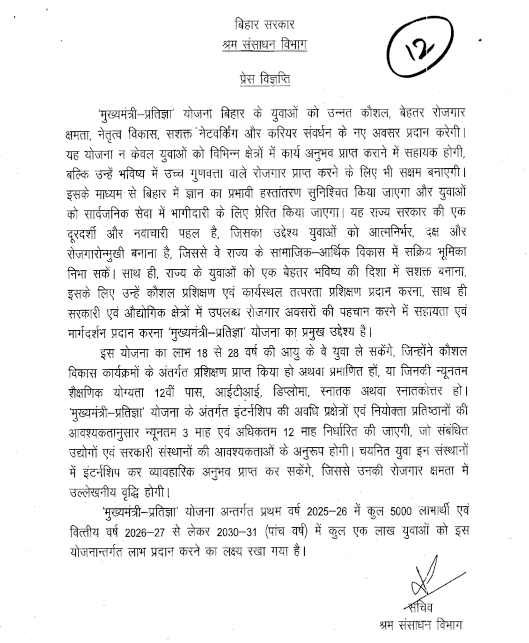 बिहार सरकार
श्रम संसाधन विभाग
12
प्रेस विज्ञप्ति
'मुख्यमंत्री–प्रतिज्ञा' योजना बिहार के युवाओं को उन्नत कौशल, बेहतर रोजगार
क्षमता, नेतृत्व विकास, सशक्त नेटवर्किंग और करियर संवर्धन के नए अवसर प्रदान करेगी।
यह योजना न केवल युवाओं को विभिन्न क्षेत्रों में कार्य अनुभव प्राप्त कराने में सहायक होगी,
बल्कि उन्हें भविष्य में उच्च गुणवत्ता वाले रोजगार प्राप्त करने के लिए भी सक्षम बनाएगी।
इसके माध्यम से बिहार में ज्ञान का प्रभावी हस्तांतरण सुनिश्चित किया जाएगा और युवाओं
को सार्वजनिक सेवा में भागीदारी के लिए प्रेरित किया जाएगा। यह राज्य सरकार की एक
दूरदर्शी और नवाचारी पहल है, जिसका उद्देश्य युवाओं को आत्मनिर्भर, दक्ष और
रोजगारोन्मुखी बनाना है, जिससे वे राज्य के सामाजिक–आर्थिक विकास में सक्रिय भूमिका
निभा सकें। साथ ही, राज्य के युवाओं को एक बेहतर भविष्य की दिशा में सशक्त बनाना,
इसके लिए उन्हें कौशल प्रशिक्षण एवं कार्यस्थल तत्परता प्रशिक्षण प्रदान करना, साथ ही
सरकारी एवं औद्योगिक क्षेत्रों में उपलब्ध रोजगार अवसरों की पहचान करने में सहायता एवं
मार्गदर्शन प्रदान करना 'मुख्यमंत्री–प्रतिज्ञा' योजना का प्रमुख उद्देश्य है।
इस योजना का लाभ 18 से 28 वर्ष की आयु के वे युवा ले सकेंगे, जिन्होंने कौशल
विकास कार्यक्रमों के अंतर्गत प्रशिक्षण प्राप्त किया हो अथवा प्रमाणित हों, या जिनकी न्यूनतम
शैक्षणिक योग्यता 12वीं पास, आईटीआई, डिप्लोमा, स्नातक अथवा स्नातकोत्तर हो।
'मुख्यमंत्री–प्रतिज्ञा' योजना के अंतर्गत इंटर्नशिप की अवधि प्रक्षेत्रों एवं नियोक्ता प्रतिष्ठानों की
आवश्यकतानुसार न्यूनतम 3 माह एवं अधिकतम 12 माह निर्धारित की जाएगी, जो संबंधित
उद्योगों एवं सरकारी संस्थानों की आवश्यकताओं के अनुरूप होगी। चयनित युवा इन संस्थानों
में इंटर्नशिप कर व्यावहारिक अनुभव प्राप्त कर सकेंगे, जिससे उनकी रोजगार क्षमता में
उल्लेखनीय वृद्धि होगी।
'मुख्यमंत्री–प्रतिज्ञा' योजना अन्तर्गत प्रथम वर्ष 2025–26 में कुल 5000 लाभार्थी एवं
वित्तीय वर्ष 2026–27 से लेकर 2030–31 (पांच वर्ष) में कुल एक लाख युवाओं को इस
योजनान्तर्गत लाभ प्रदान करने का लक्ष्य रखा गया है।
सचिव
श्रम संसाधन विभाग